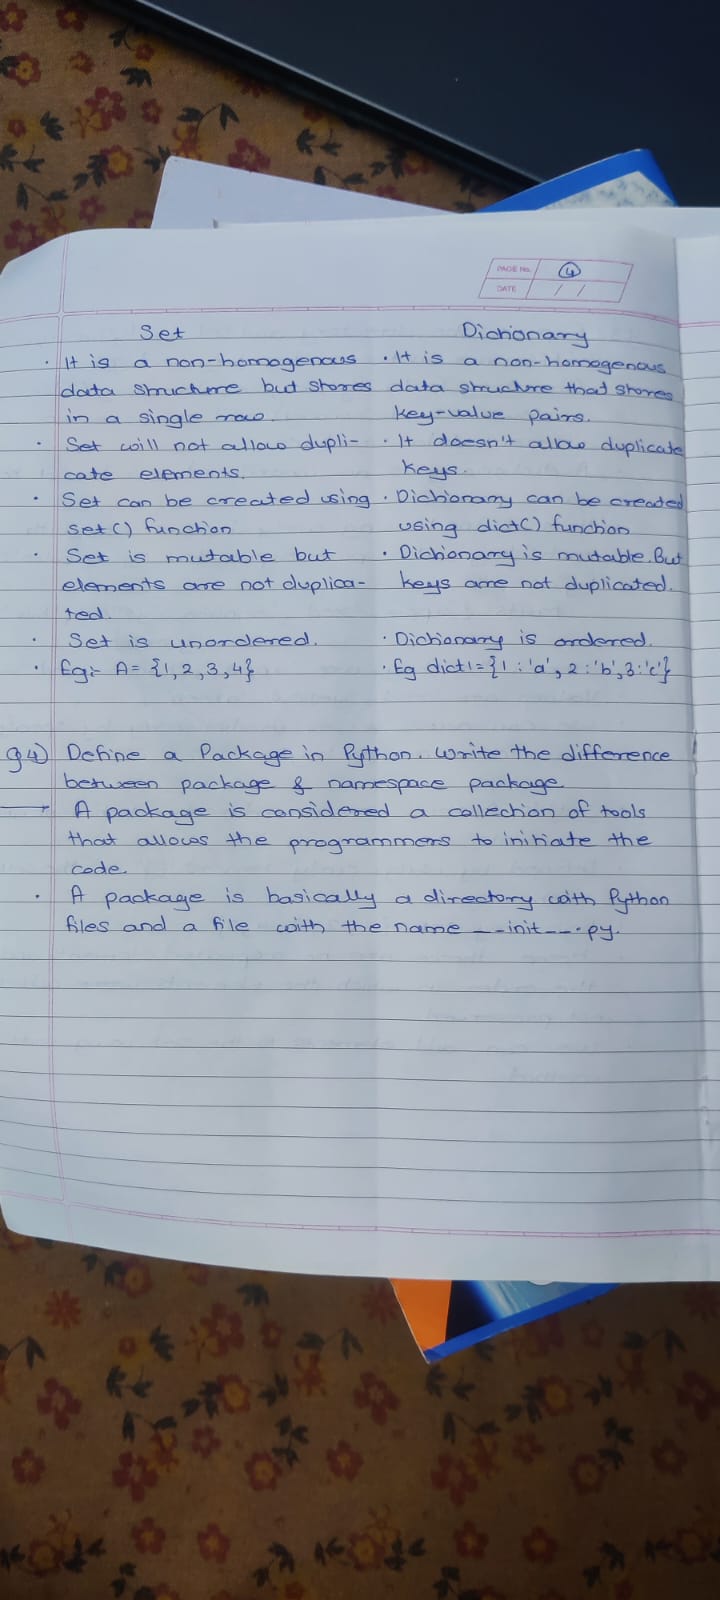 PAGE No. 4
DATE / /
Set
Dictionary
· It is a non-homogenous
data structure but stores
in a single row.
· Set will not allow dupli-
cate elements.
· Set can be created using
set() function
· Set is mutable but
elements are not duplica-
ted.
· Set is unordered.
· Eg:- A = {1, 2, 3, 4}
· It is a non-homogenous
data structure that stores
key-value pairs.
· It doesn't allow duplicate
keys.
· Dictionary can be created
using dict() function
· Dictionary is mutable. But
keys are not duplicated.
· Dictionary is ordered.
· Eg dict1 = {1 : 'a', 2 : 'b', 3 : 'c'}
Q4) Define a Package in Python. Write the difference
between package & namespace package.
→ A package is considered a collection of tools
that allows the programmers to initiate the
code.
· A package is basically a directory with Python
files and a file with the name __init__.py.